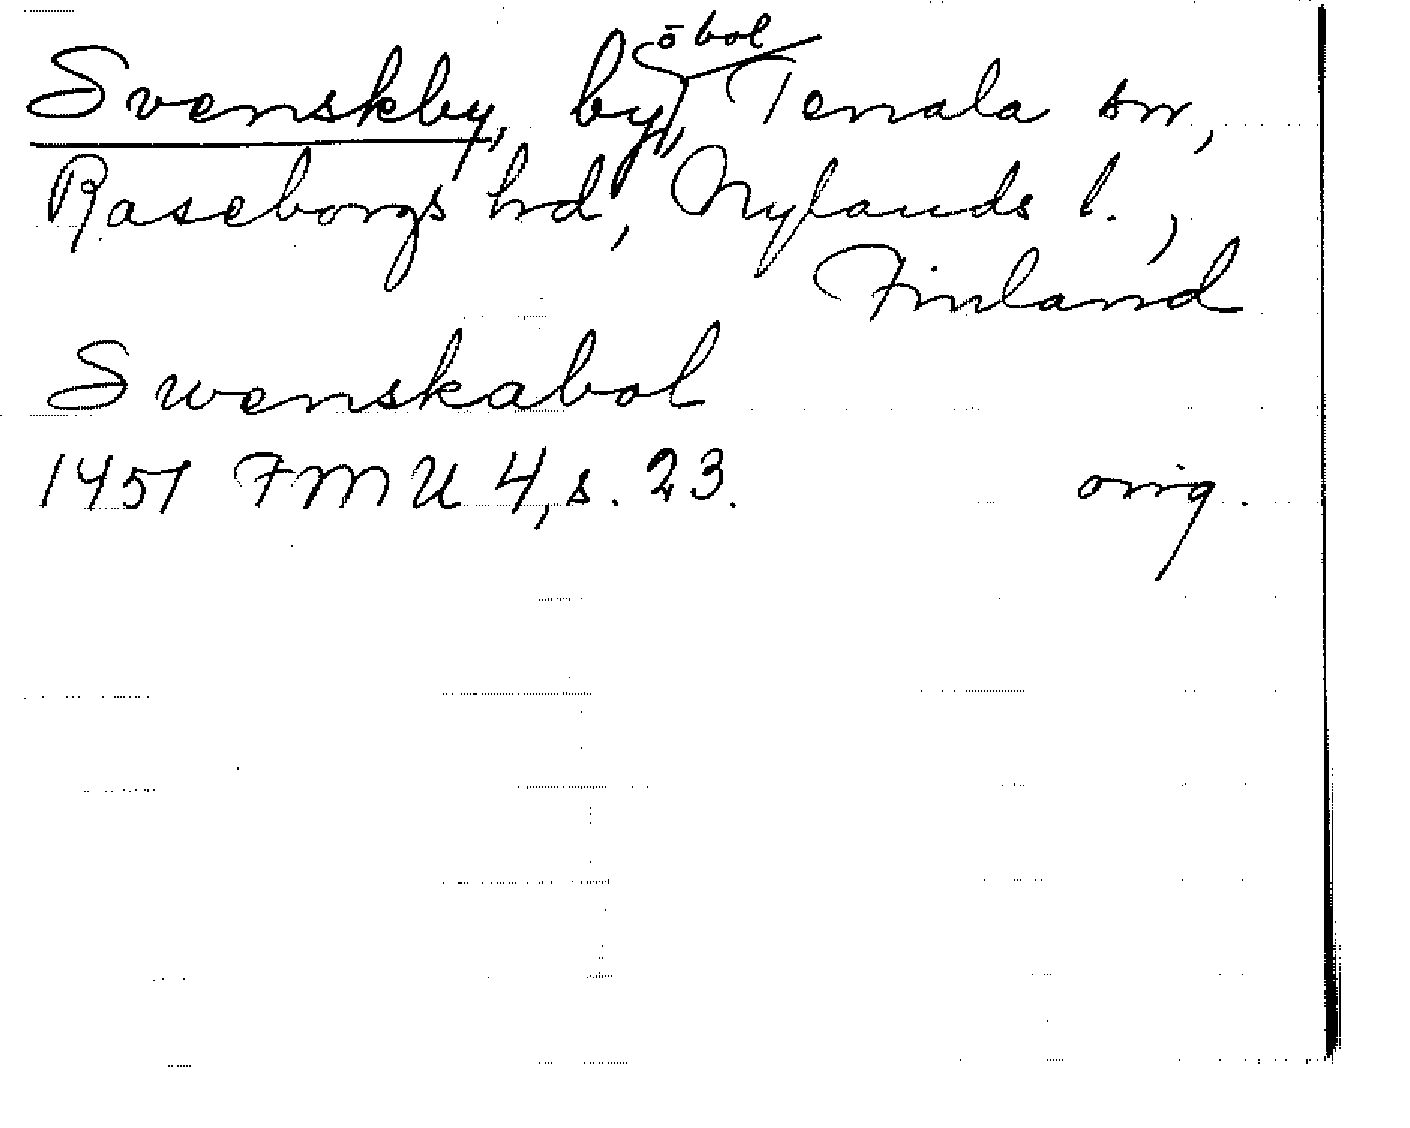 ō bol
Svenskby, by, Tenala sn,
Raseborgs hrd, Nylands l.,
Finland
Swenskabol
1451 FMU 4, s. 23. orig.